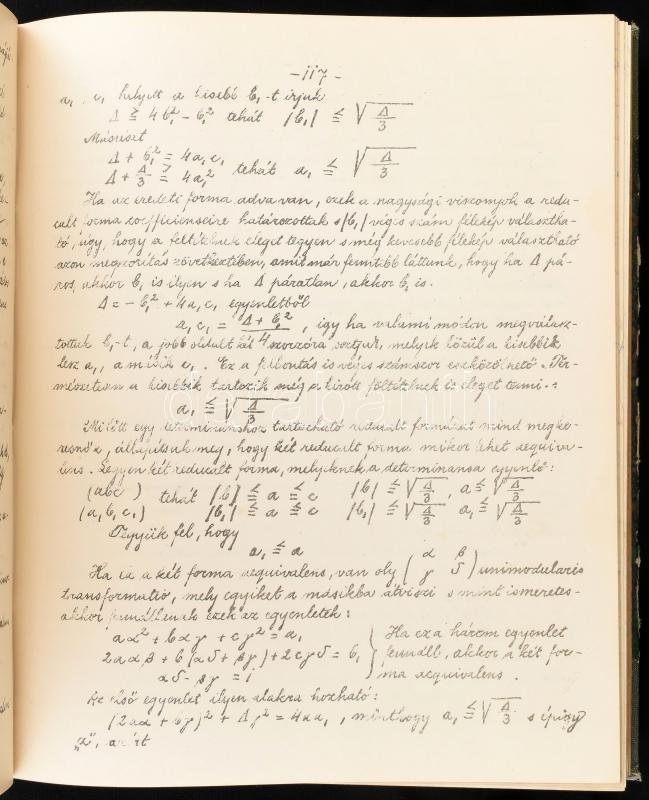 -117-
a₁, c₁ helyett a kisebb b₁-t irjuk
Δ ≧ 4b₁² - b₁² tehát |b₁| ≦ √Δ/3
Másrészt
Δ + b₁² = 4a₁c₁
Δ + Δ/3 ≧ 4a₁² tehát a₁ ≦ √Δ/3
Ha az eredeti forma adva van, ezek a nagysági viszonyok a redu-
cult forma coefficienseire határozottak s |b₁| véges szám féleképp választha-
tó úgy, hogy a feltételnek eleget tegyen s még kevesebb féleképp választható
azon megszorítás következtében, amit már fentebb láttunk, hogy ha Δ pá-
ros, akkor b₁ is ilyen s ha Δ páratlan, akkor b₁ is.
Δ = -b₁² + 4a₁c₁ egyenletből
a₁c₁ = Δ + b₁²/4, így ha valami módon megválasz-
tottuk b₁-t, a jobb oldalt két szorzóra osztjuk, melyek közül a kisebbik
lesz a₁, a másik c₁. Ez a felbontás is véges számszor eszközölhető. Ter-
mészetesen a kisebbik tartozik még a kirótt föltételnek is eleget tenni:
a₁ ≦ √Δ/3
Mielőtt egy determinánshoz tartozható reducált formákat mind megke-
resnők, állapítsuk meg, hogy két reducált forma mikor lehet aequiva-
lens. Legyen két reducált forma, melyeknek a determinánsa egyenlő:
(abc) tehát |b| ≦ a ≦ c |b| ≦ √Δ/3, a ≦ √Δ/3
(a₁b₁c₁) |b₁| ≦ a ≦ c |b₁| ≦ √Δ/3 a₁ ≦ √Δ/3
Tegyük fel, hogy
a₁ ≦ a
Ha ez a két forma aequivalens, van oly (α β γ δ) unimodularis
transformatió, mely egyiket a másikba átviszi s mint ismeretes-
akkor fennállnak ezek az egyenletek:
aα² + bαγ + cγ² = a₁
2aαβ + b(αδ + βγ) + 2cγδ = b₁
αδ - βγ = 1
Ha ez a három egyenlet
fennáll, akkor a két for-
ma aequivalens.
Az első egyenlet ilyen alakra hozható:
(2aα + bγ)² + Δγ² = 4aa₁, minthogy a₁ ≦ √Δ/3 s épigy
„a", azért